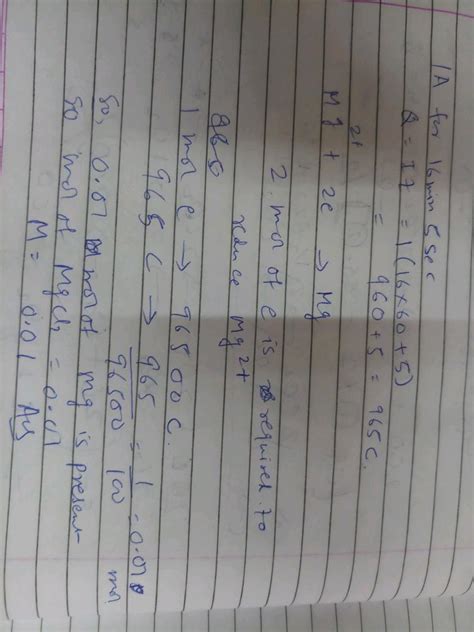 1A for 16min 5sec
Q = IT = 1(16×60+5)
= 960+5 = 965C.
Mg²⁺ + 2e → Mg
2 mol of e is required to
reduce Mg²⁺
965
1 mol e → 96500C.
965 C → 965/96500 = 1/100 = 0.01 mol
So, 0.01 mol of Mg is present
So mol of MgCl₂ = 0.01
M = 0.01 Ans